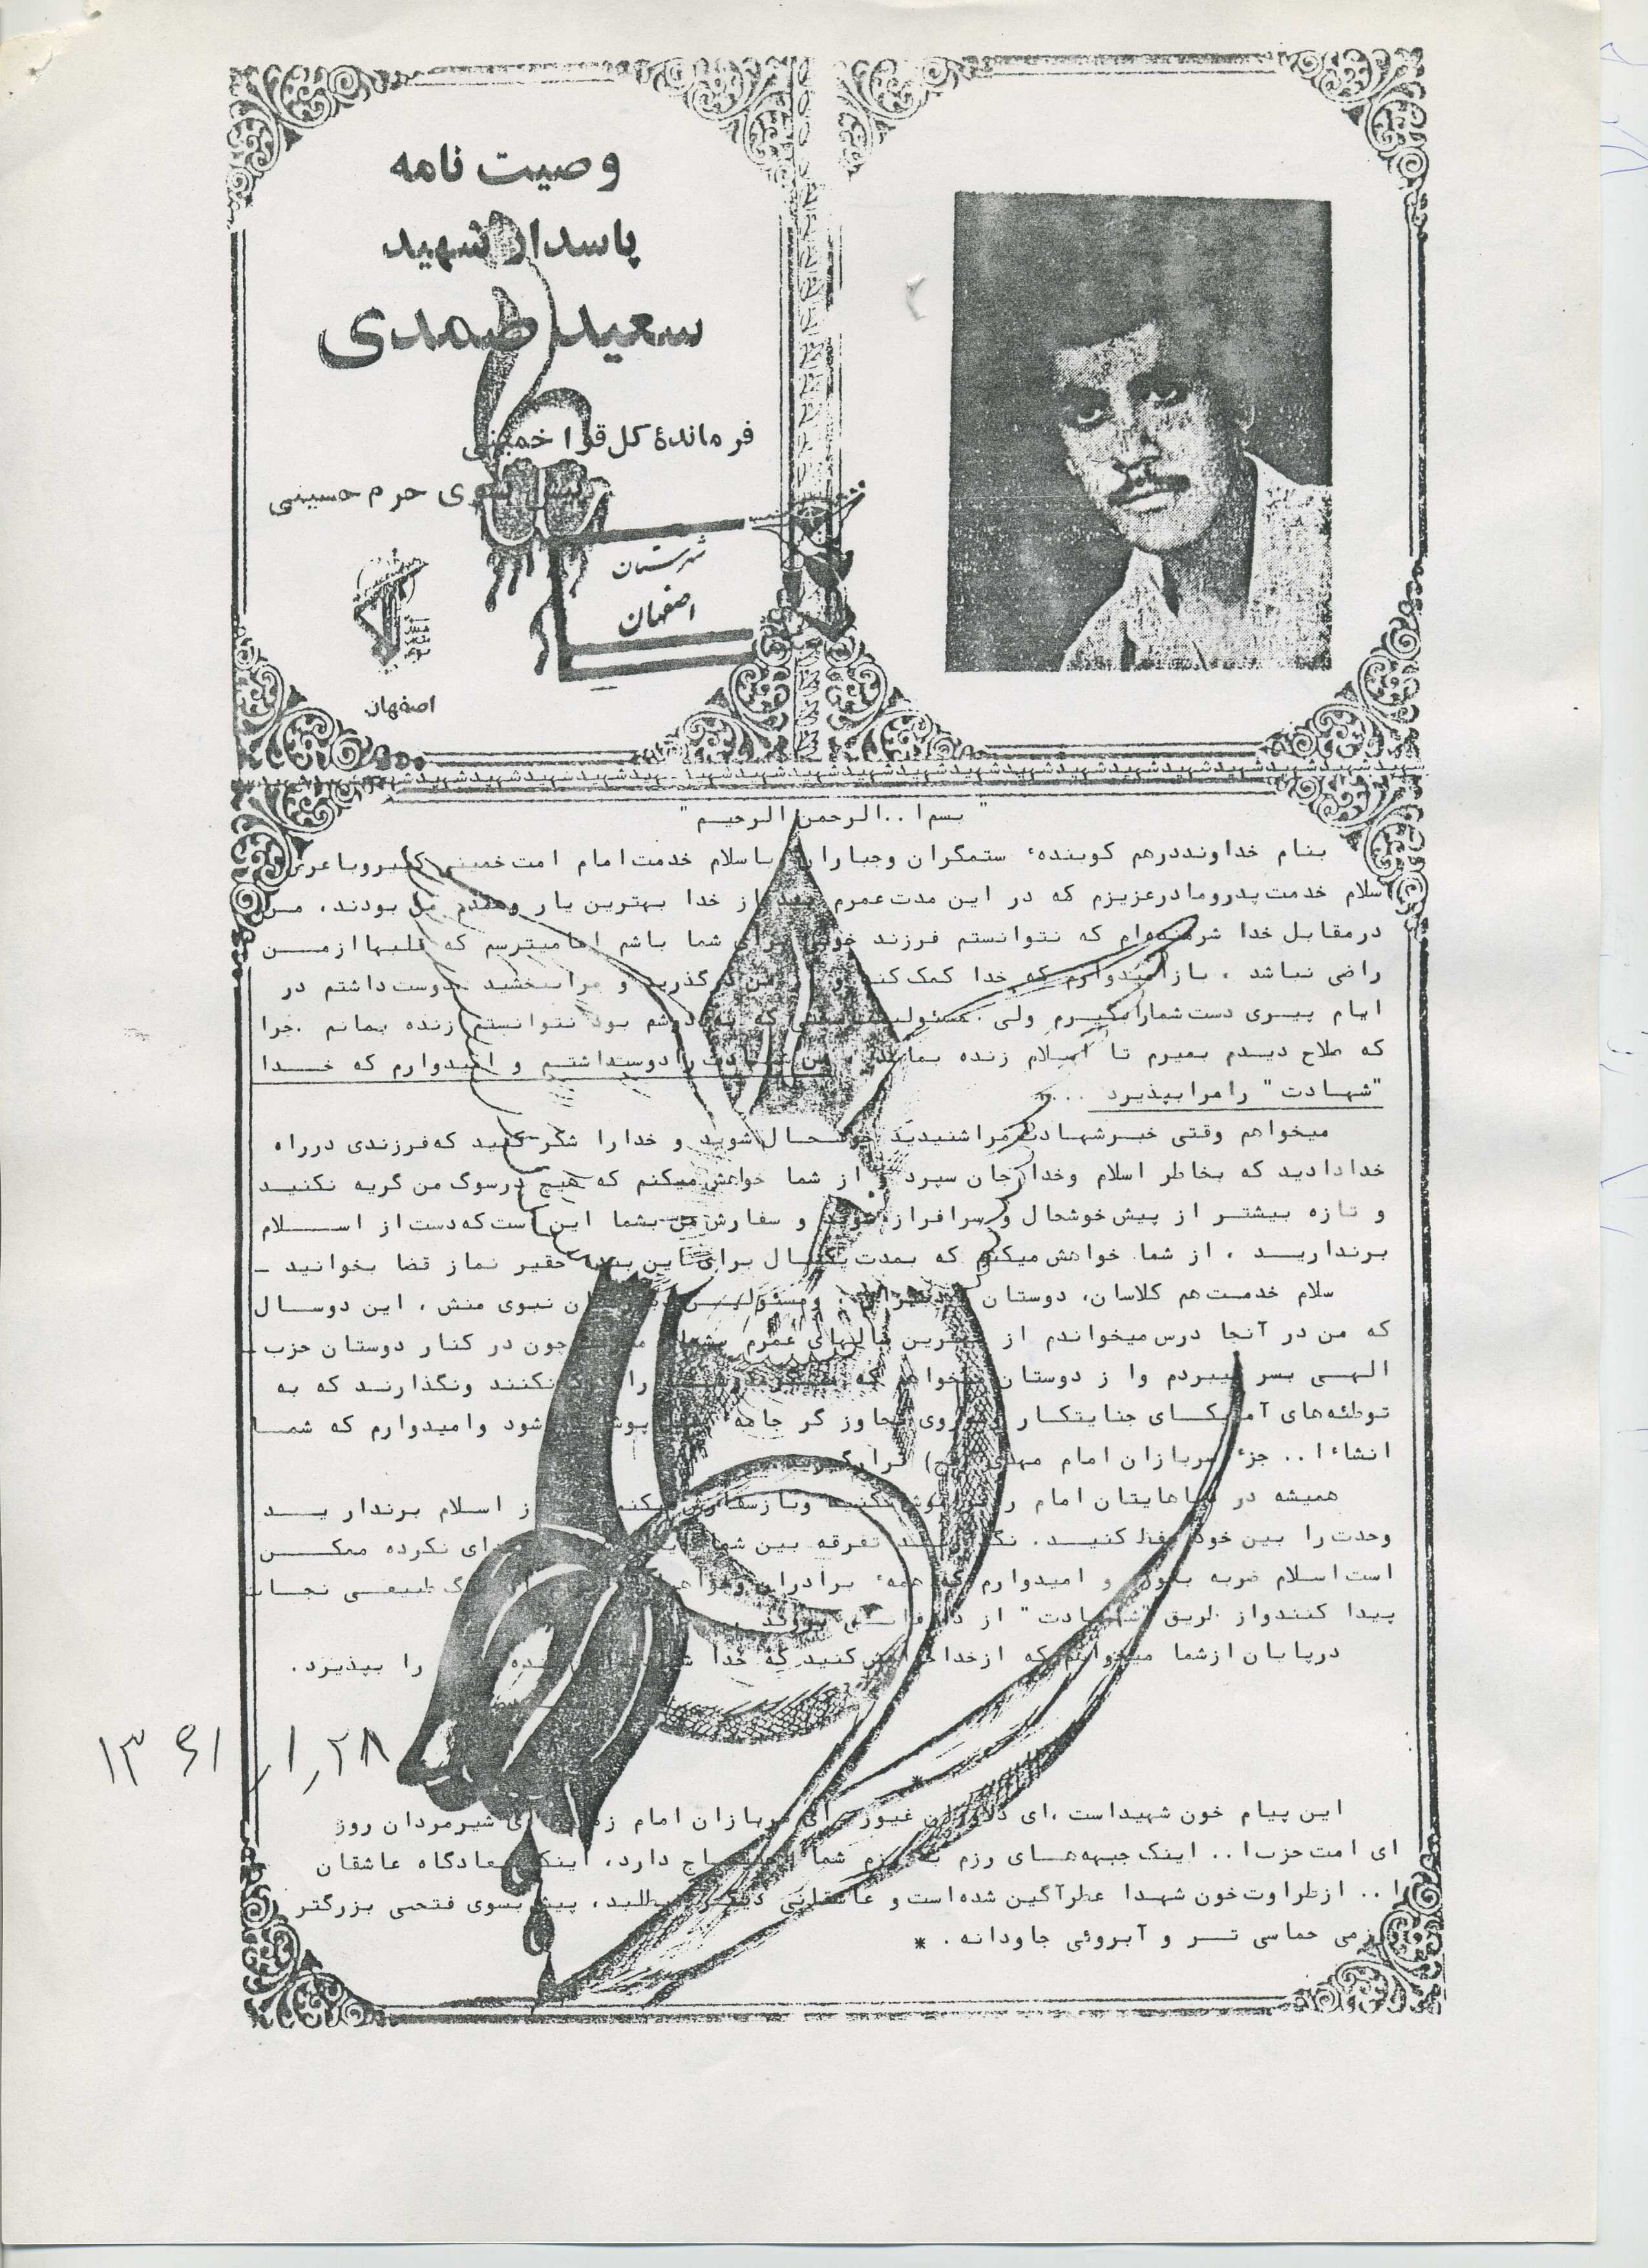 وصیت نامه
پاسدار شهید
سعید صمدی
فرماندهٔ کل قوا خمینی
پیش بسوی حرم حسینی
شهرستان
اصفهان
اصفهان
شهید شهید شهید شهید شهید شهید شهید شهید شهید شهید شهید شهید شهید شهید شهید شهید شهید
"بسم ا.. الرحمن الرحیم"
بنام خداوند درهم کوبندهٔ ستمگران و جباران با سلام خدمت امام امت خمینی کبیر و با عرض
سلام خدمت پدر و مادر عزیزم که در این مدت عمرم بعد از خدا بهترین یار و همدم من بودند، من
در مقابل خدا شرمنده‌ام که نتوانستم فرزند خوبی برای شما باشم اما میترسم که قلبها از من
راضی نباشد ، باز امیدوارم که خدا کمک کند و از من درگذرید و مرا ببخشید .دوست داشتم در
ایام پیری دست شما را بگیرم ولی مسئولیت که به دوشم بود نتوانستم زنده بمانم .چرا
که صلاح دیدم بمیرم تا اسلام زنده بماند من شهادت را دوست داشتم و امیدوارم که خدا
"شهادت" را مرا بپذیرد ....
میخواهم وقتی خبر شهادت مرا شنیدید خوشحال شوید و خدا را شکر کنید که فرزندی در راه
خدا دادید که بخاطر اسلام و خدا جان سپرد از شما خواهش میکنم که هیچ در سوگ من گریه نکنید
و تازه بیشتر از پیش خوشحال و سرافراز شوید و سفارش من بشما این است که دست از اسلام
برندارید ، از شما خواهش میکنم که بمدت یکسال برای این بنده حقیر نماز قضا بخوانید ـ
سلام خدمت هم کلاسان، دوستان و مسئولین نبوی منش ، این دو سال
که من در آنجا درس میخواندم از بهترین سالهای عمرم بشمار چون در کنار دوستان حزب ـ
الهی بسر میبردم و از دوستان میخواهم که را نکنند و نگذارند که به
توطئه‌های آمریکای جنایتکار و شوروی تجاوز گر جامه پوشانده شود و امیدوارم که شما
انشاء ا.. جزء سربازان امام مهدی (عج) قرار گیرید
همیشه در دعاهایتان امام را فراموش نکنید و باز سفارش میکنم از اسلام برندارید
وحدت را بین خود حفظ کنید. تفرقه بین شما خدای نکرده ممکن
است اسلام ضربه بخورد و امیدوارم که همهٔ برادران و خواهران مرگ طبیعی نجات
پیدا کنند و از طریق "شهادت" از دار فانی بروند .
در پایان از شما میخواهم که از خدا خواهش کنید که خدا را بپذیرد.
۱۳۶۱ , ۱ , ۲۸
*
این پیام خون شهید است ، ای دلاوران غیور ای سربازان امام زمان ای شیرمردان روز
ای امت حزب ا.. اینک جبهه‌های رزم به رزم شما احتیاج دارد، اینک میعادگاه عاشقان
ا.. از طراوت خون شهدا عطرآگین شده است و عاشقانی دیگر میطلبد، پیش بسوی فتحی بزرگتر
رزمی حماسی تر و آبروئی جاودانه . *